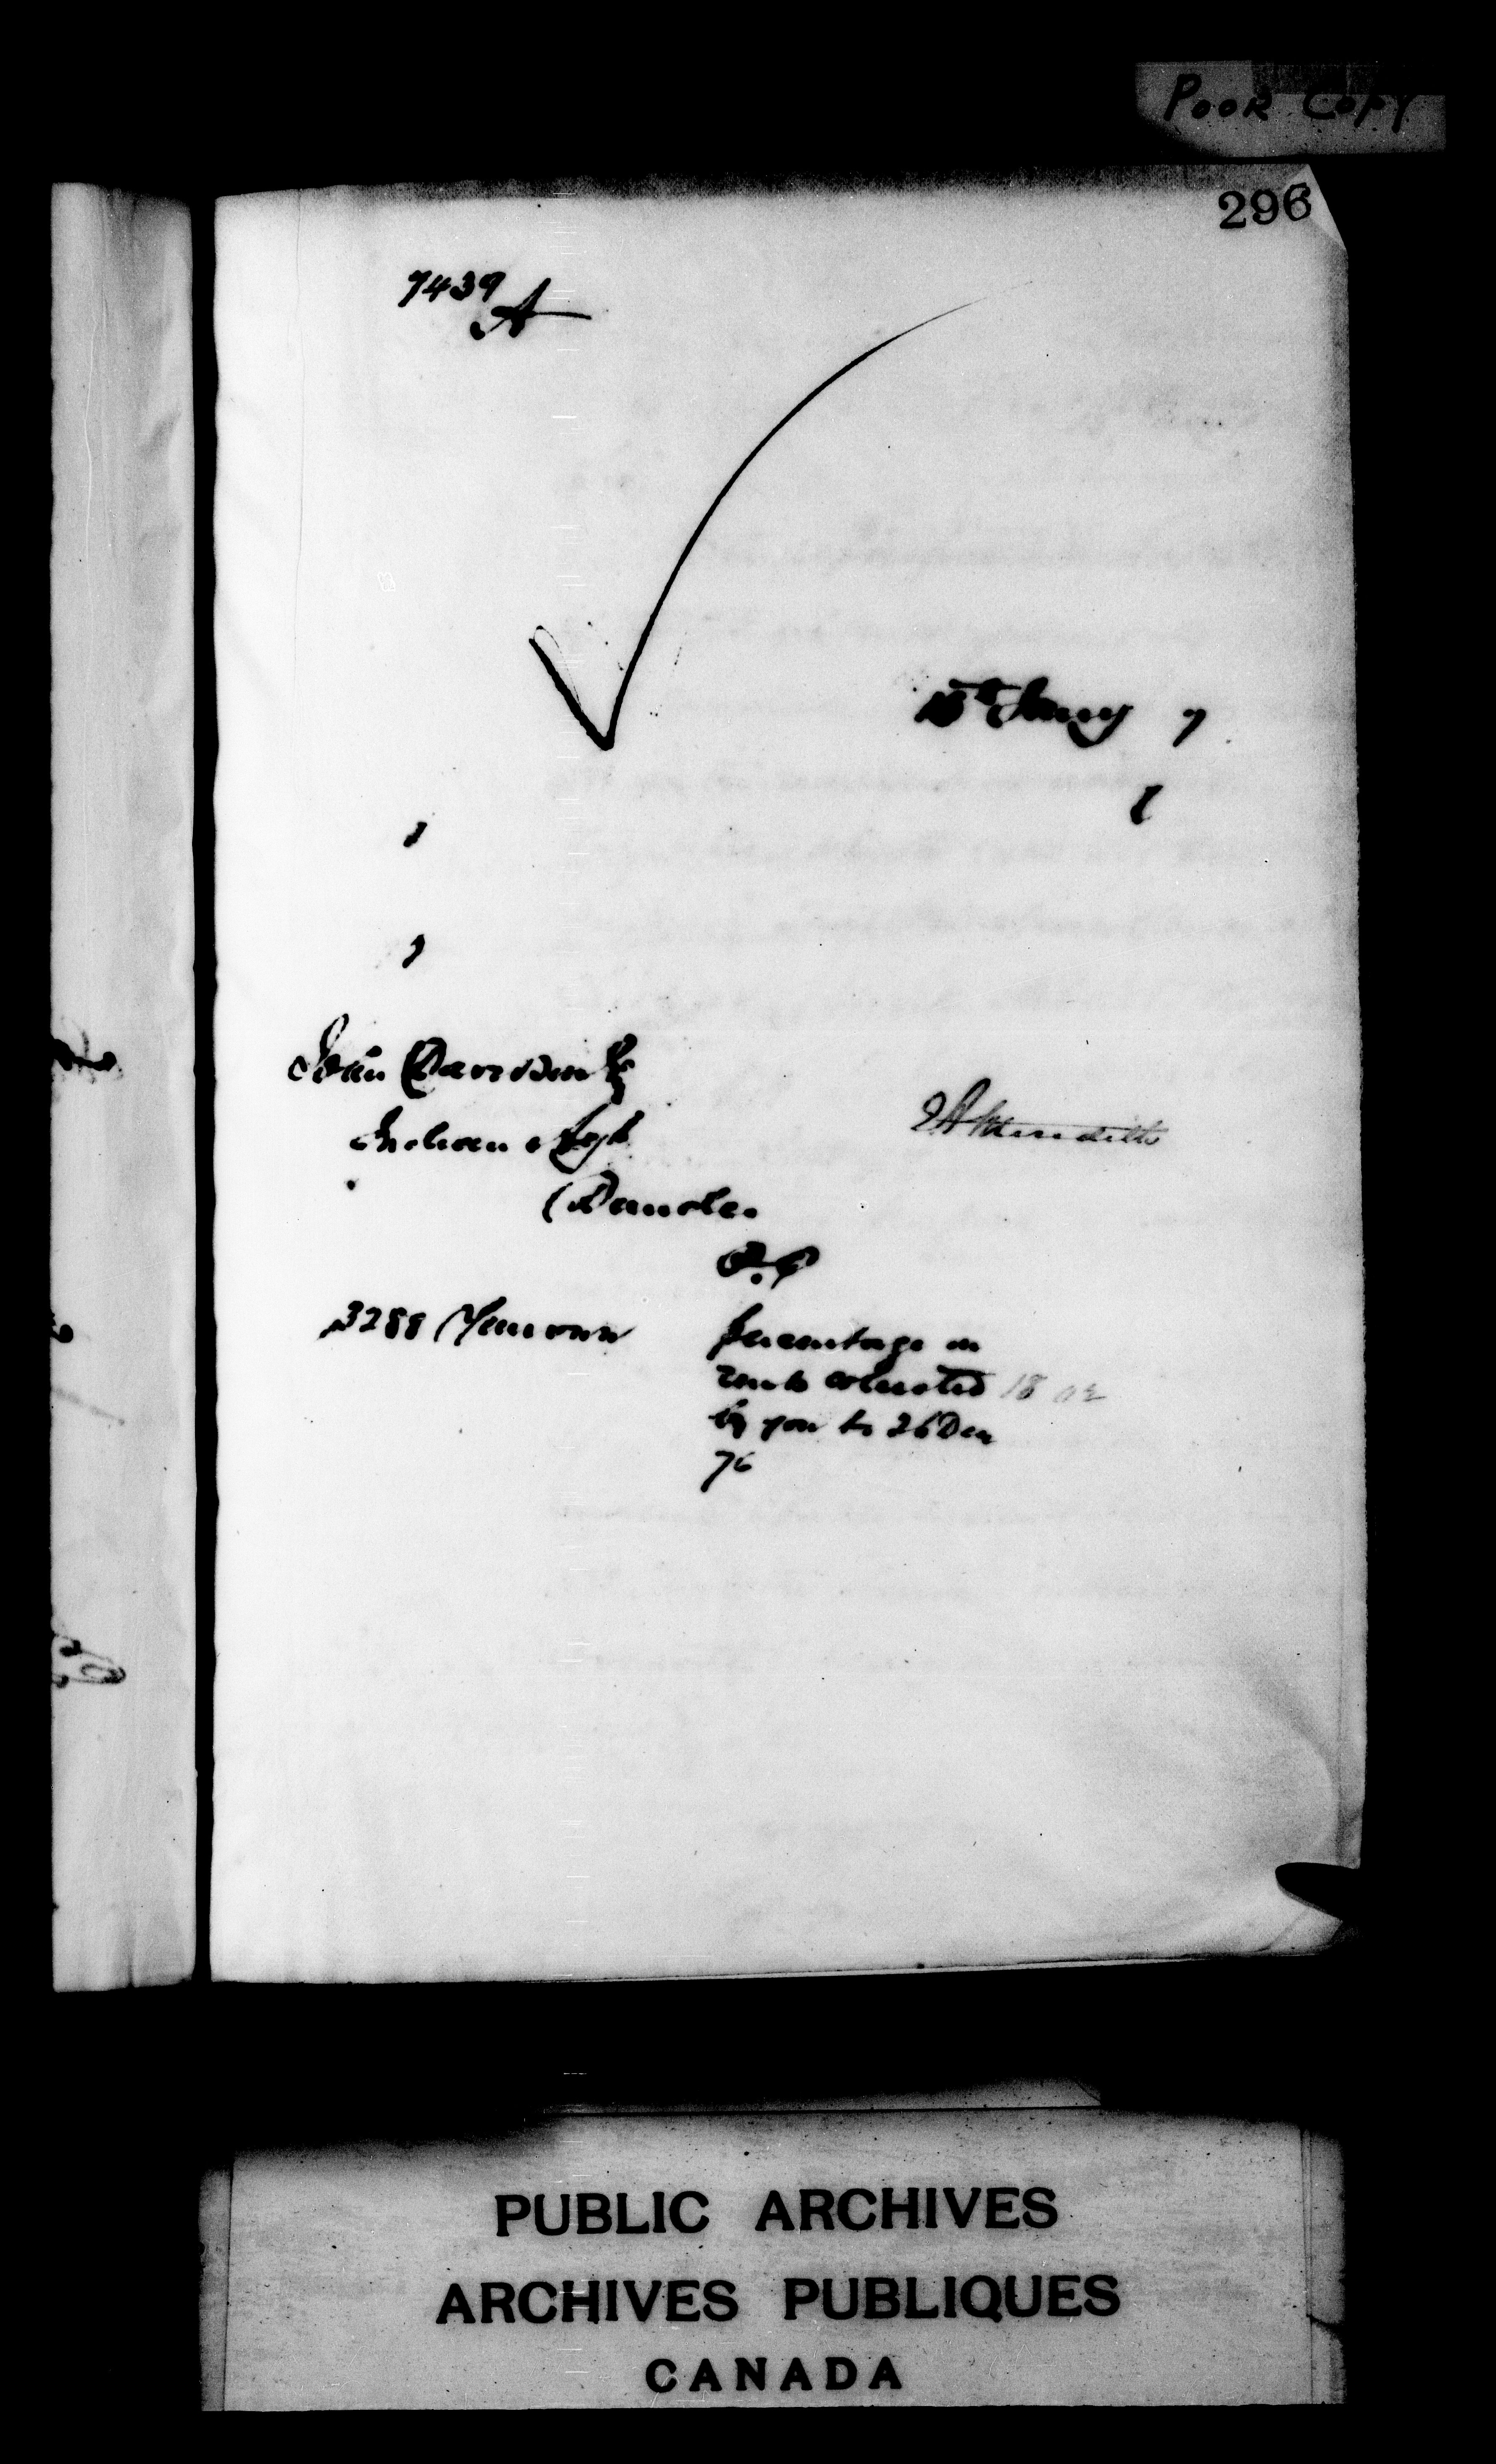 POOR COPY
296
7439
A
15th Jany 7
John Davidson Esq
J A Meredith
Indian Supt
Dundee
P.Q
3288 Yourself
percentage on
rents collected 18 02
by you to 26 Dec
76
PUBLIC ARCHIVES
ARCHIVES PUBLIQUES
CANADA